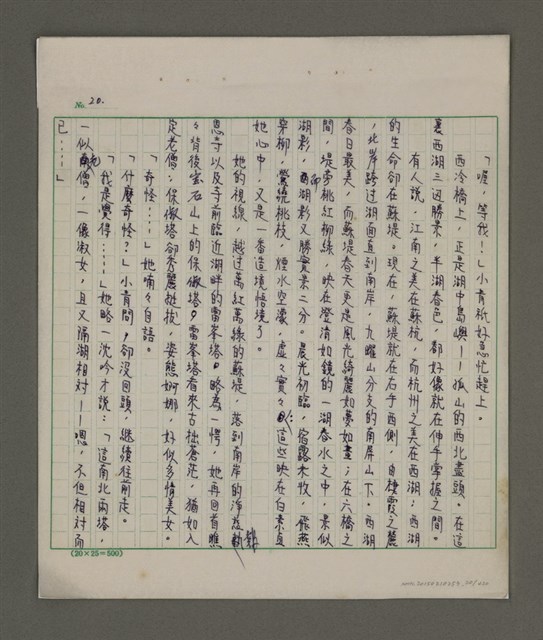 No. 20.
「喔，等我！」小青祇好急忙趕上。
西冷橋上，正是湖中島嶼——孤山的西北盡頭。在這
裏西湖三迎勝景，半湖春色，都好像就在伸手掌握之間。
有人說，江南之美在蘇杭，而杭州之美在西湖；西湖
的生命卻在蘇堤。現在，蘇堤就在右手西側，自棲霞之麓
，北岸跨过湖面直到南岸，九曜山分支的南屏山下。西湖
春日最美，而蘇堤春天更是風光綺麗如夢如畫；在六橋之
間，堤旁桃紅柳綠，映在澄清如鏡的一湖春水之中，景似
湖影，而湖影又勝實景二分。晨光初臨，宿露未收，飛燕
穿柳，鶯繞桃枝，煙水空濛，虛々實々：這些映在白素貞
她心中，又是一番造境悟境了。
她的視線，越过萬紅萬綠的蘇堤，落到南岸的淨慈
恩寺以及寺前臨近湖畔的雷峯塔。略為一愕，她再回首瞧
々背後宝石山上的保俶塔。雷峯塔看來古拙蒼茫，猶如入
定老僧；保俶塔卻秀麗挺拔，姿態婀娜，好似多情美女。
「奇怪……」她喃々自語。
「什麼奇怪？」小青問，卻沒回頭，繼續往前走。
「我是覺得……」她略一沈吟才說：「這南北兩塔，
一似老僧，一像淑女，且又隔湖相對——嗯，不但相對而
已……」
(20×25=500)